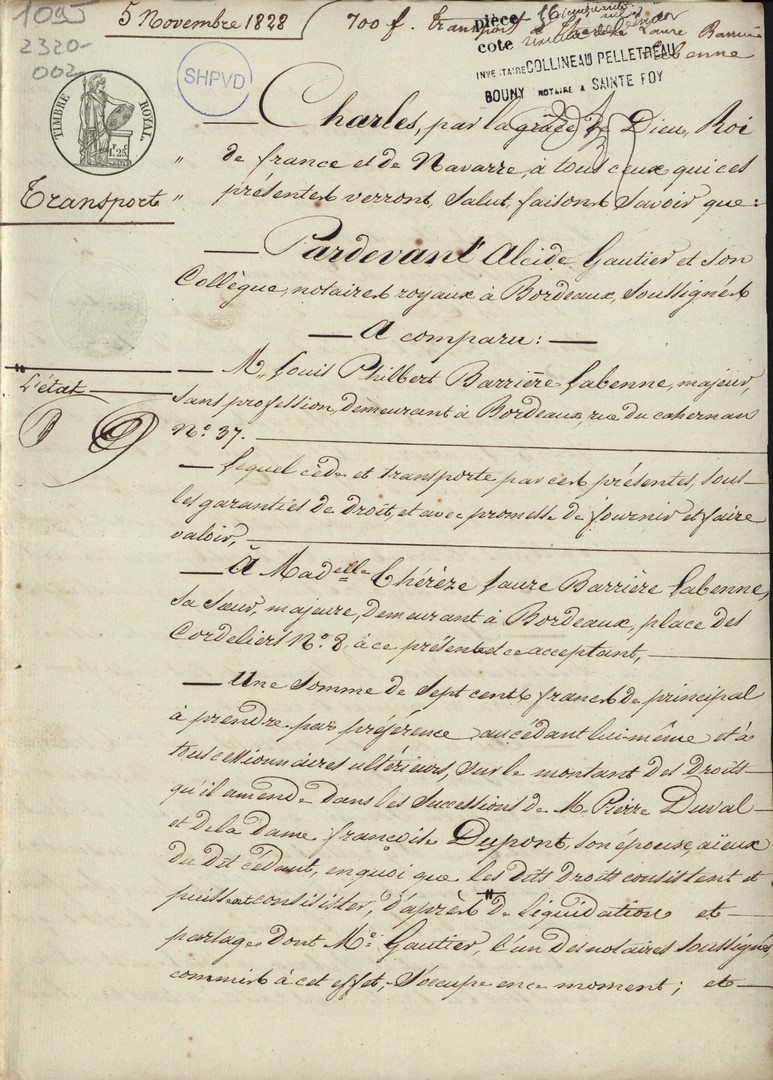 1095
2320-
002
5 Novembre 1828
700 f. Transport
pièce
cote
Laure Barrière
Labenne
INVENTAIRE COLLINEAU PELLETREAU
BOUNY NOTAIRE A SAINTE FOY
SHPVD
TIMBRE ROYAL.
1 F. 25 C.
Charles, par la grâce de Dieu, Roi
de france et de Navarre, à tous ceux qui ces
Transport
présentes verront, Salut, faisons Savoir que:
Pardevant Alcide Gautier et son
Collègue, notaires royaux à Bordeaux, soussignés
A comparu:
M. Louis Philbert Barrière Labenne, majeur,
L'état
sans profession, demeurant à Bordeaux, rue du cahernan
N.º 37.
Lequel cède et transporte par ces présentes, sous
les garanties de droit, et avec promesse de fournir et faire
valoir,
A Madelle Thérèze Laure Barrière Labenne,
sa sœur, majeure, demeurant à Bordeaux, place des
Cordeliers N.º 8, à ce présente et ce acceptant,
Une somme de sept cents francs de principal
à prendre par préférence au cédant lui-même et à
tous cessionnaires ultérieurs, sur le montant des droits
qu'il amende dans les successions de M. Pierre Duval
et de la Dame françoise Dupont, son épouse, aïeux
du dit cédant, en quoi que les dits droits consistent et
puissent consister, d'après de liquidation et
partage dont Me. Gautier, l'un des notaires soussignés,
commis à cet effet, s'occupe en ce moment; et